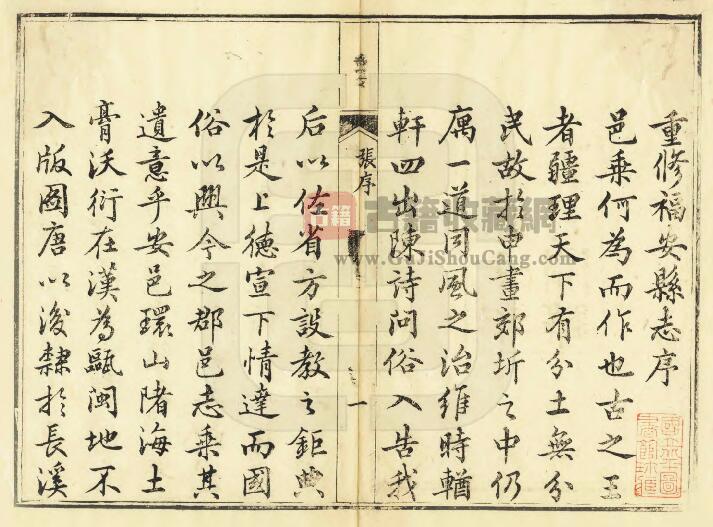 重修福安縣志序
邑乘何為而作也古之王
者疆理天下有分土無分
民故於申畫郊圻之中仍
寓一道同風之治維時輶
軒四出陳詩問俗入告我
張序
一
后以佐省方設教之鉅典
於是上德宣下情達而國
俗以興今之郡邑志乘其
遺意乎安邑環山陼海土
膏沃衍在漢為甌閩地不
入版圖唐以後隸於長溪
古籍
古籍收藏網
www.GuJiShouCang.com